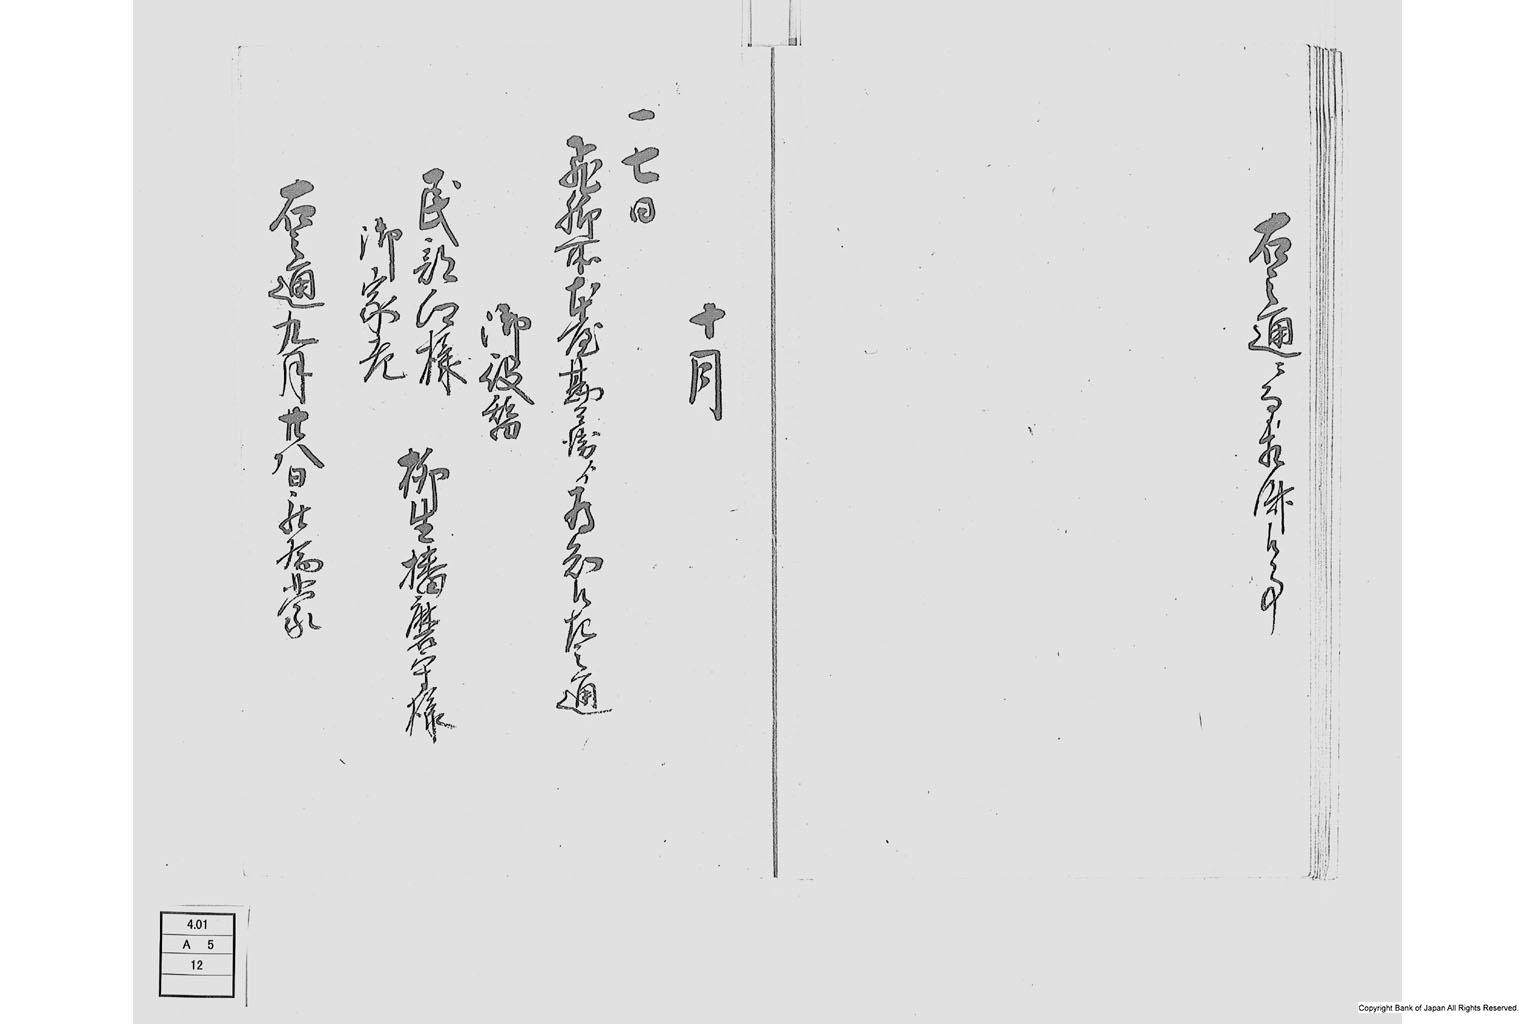 右之通ニ而表済候事
十月
一七日
飛脚所本屋勘兵衛ゟ為知候左之通
御役替
民部卿様
御家老
柳生播磨守様
右之通九月廿八日被為蒙
4.01
A 5
12
Copyright Bank of Japan All Rights Reserved.